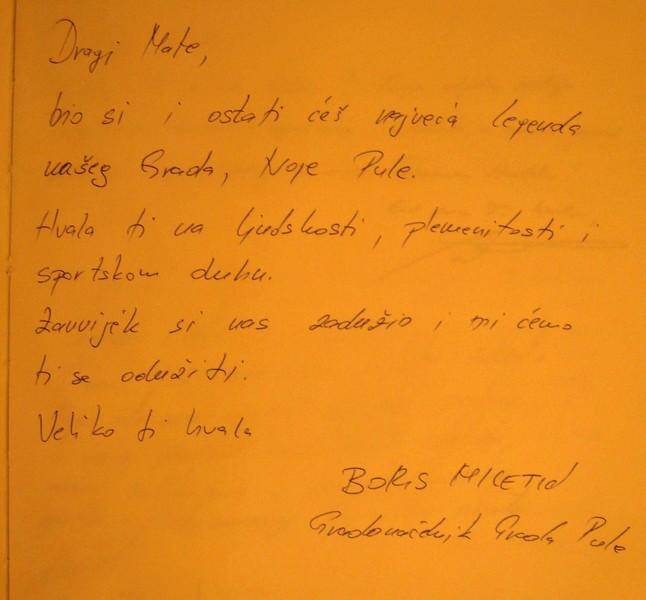 Dragi Mate,
bio si i ostati ćeš najveća legenda
našeg Grada, tvoje Pule.
Hvala ti na ljudskosti, plemenitosti i
sportskom duhu.
Zauvijek si nas zadužio i mi ćemo
ti se odužiti.
Veliko ti hvala
BORIS MILETIĆ
Gradonačelnik Grada Pule